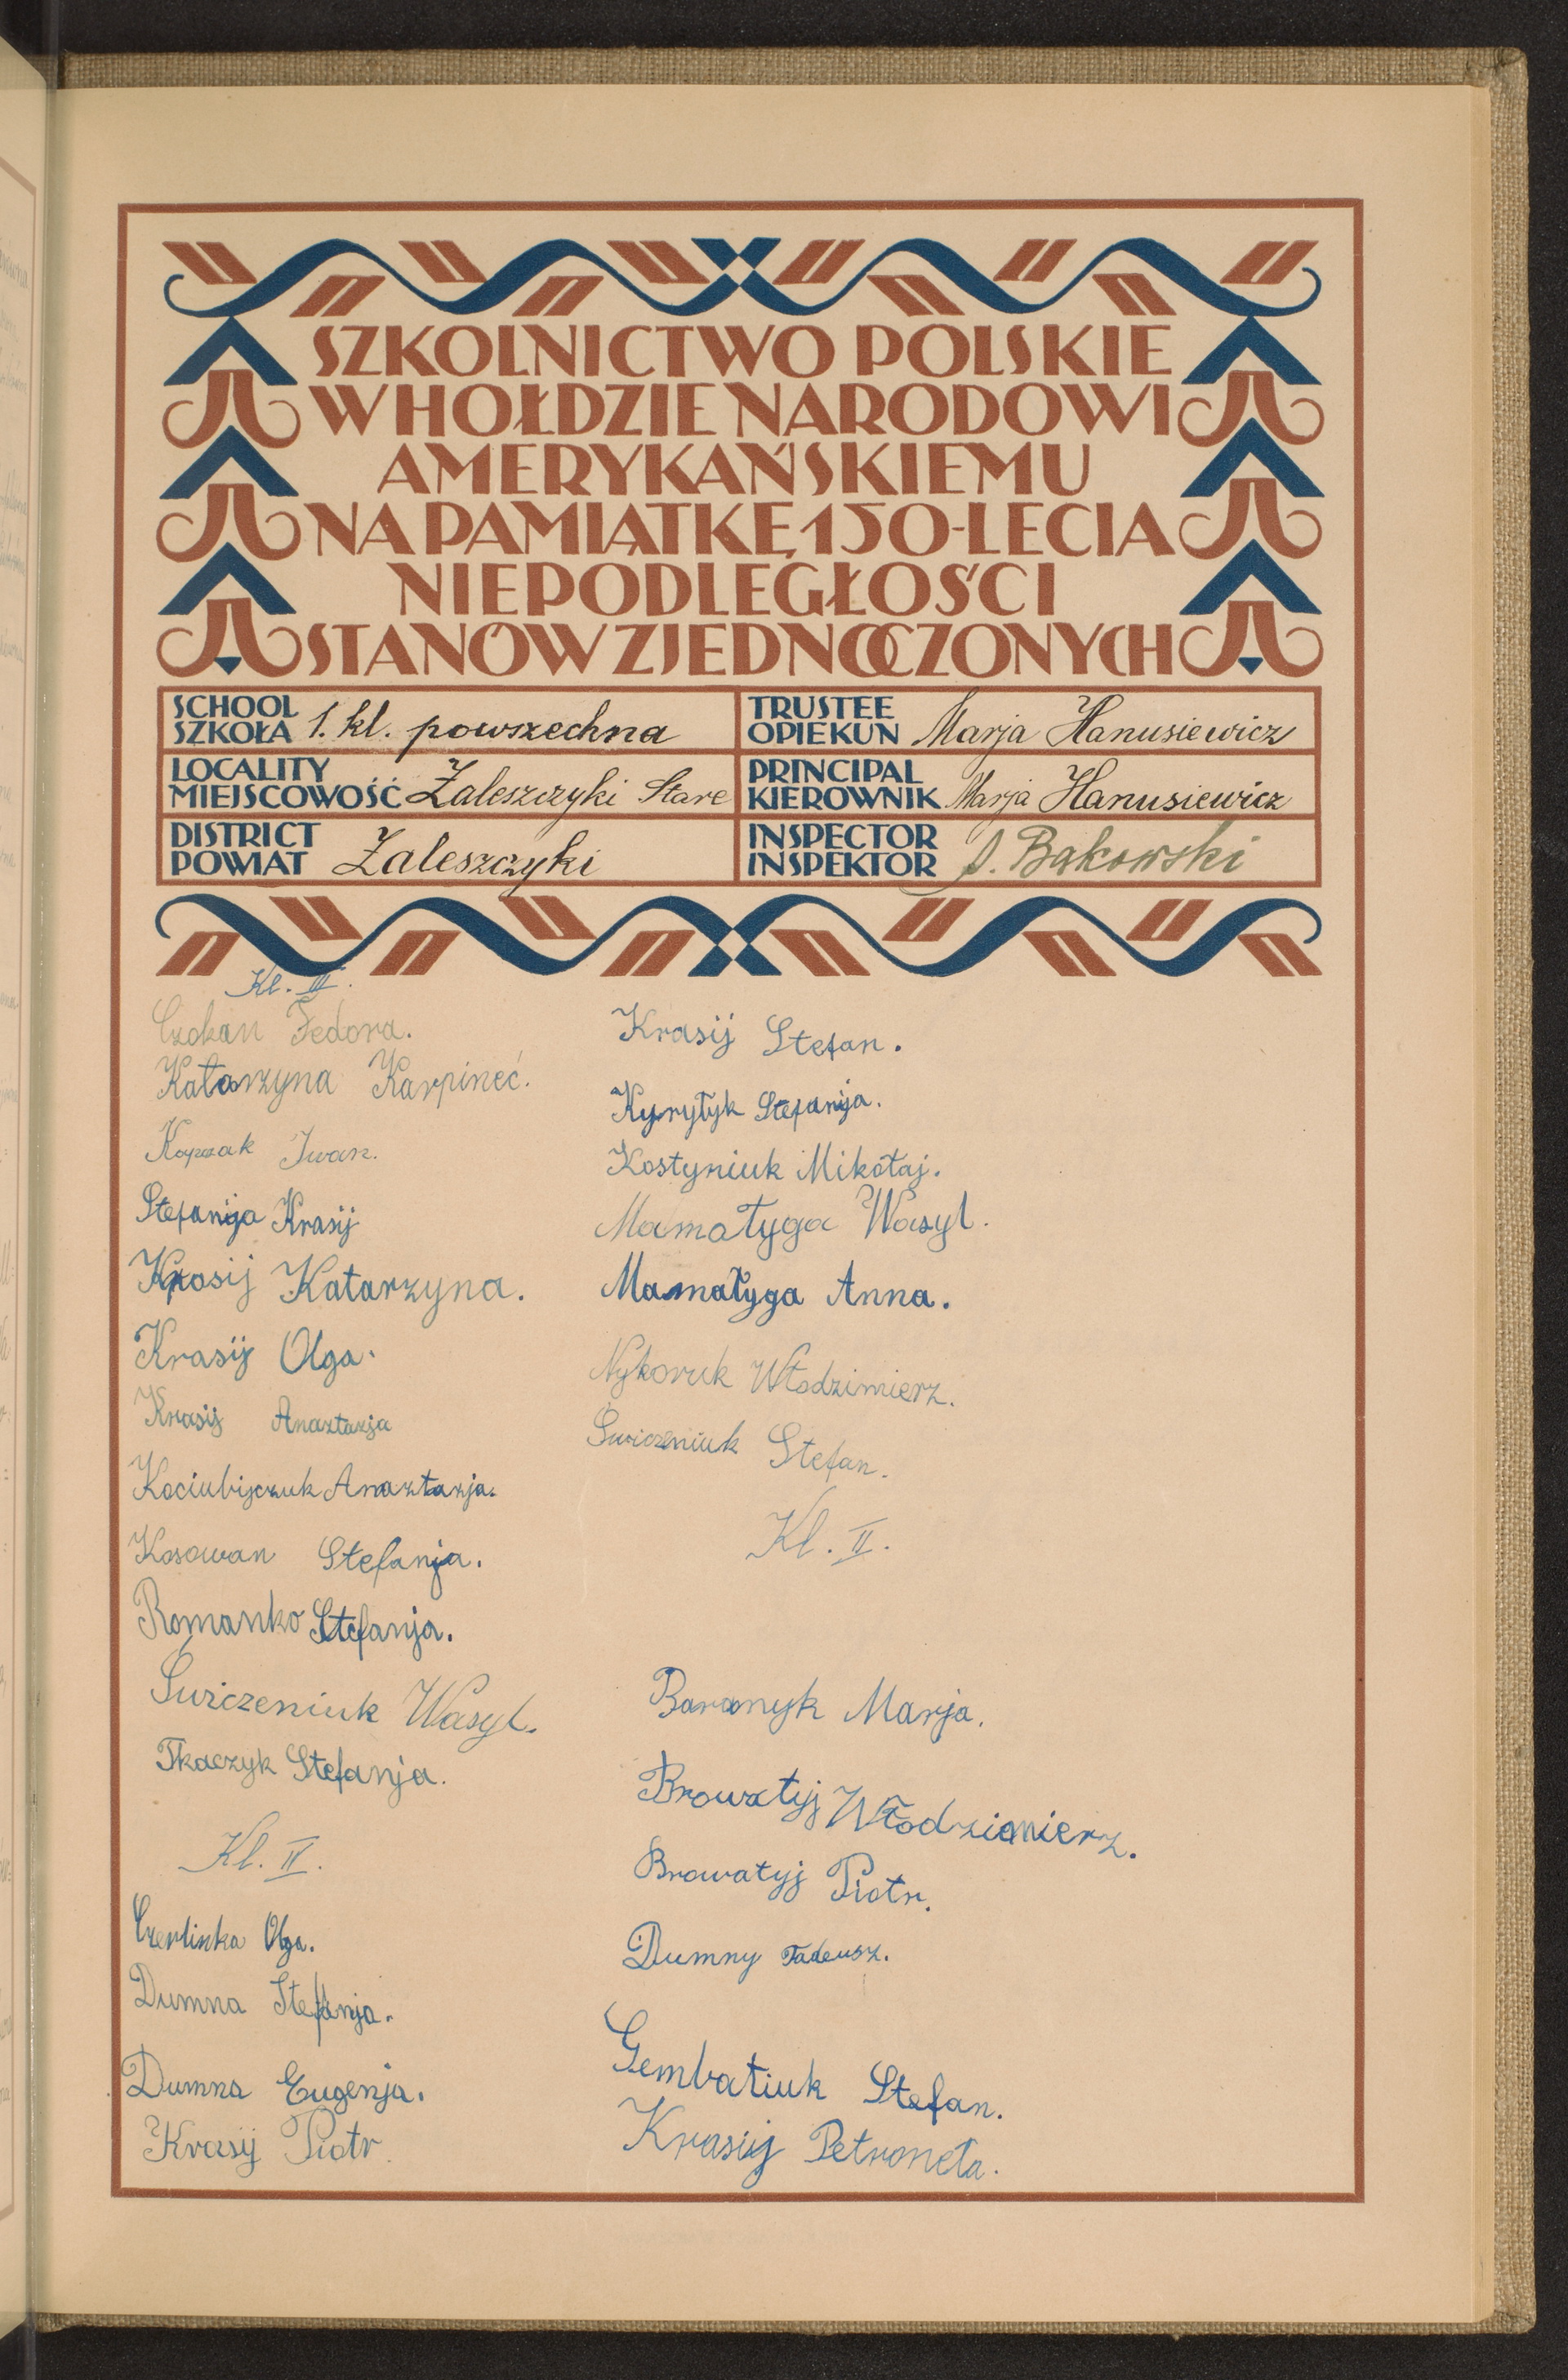 SZKOLNICTWO POLSKIE
W HOŁDZIE NARODOWI
AMERYKAŃSKIEMU
NA PAMIĄTKĘ 150-LECIA
NIEPODLEGŁOŚCI
STANÓW ZJEDNOCZONYCH
SCHOOL
SZKOŁA 1. kl. powszechna
LOCALITY
MIEJSCOWOŚĆ Zaleszczyki Stare
DISTRICT
POWIAT Zaleszczyki
TRUSTEE
OPIEKUN Marja Hanusiewicz
PRINCIPAL
KIEROWNIK Marja Hanusiewicz
INSPECTOR
INSPEKTOR Bąkowski
Kl. III.
Czokan Fedora.
Katarzyna Karpineć.
Kapczak Iwan.
Stefanija Krasij
Krasij Katarzyna.
Krasij Olga.
Krasij Anaztazja
Kociubijczuk Anaztazja.
Kosowan Stefanja.
Romanko Stefanja.
Świczeniuk Wasyl.
Tkaczyk Stefanja.
Kl. II.
Olga.
Dumna Stefanja.
Dumna Eugenja.
Krasij Piotr.
Krasij Stefan.
Kyryłyk Stefanija.
Kostyniuk Mikołaj.
Mamałyga Wasyl.
Mamałyga Anna.
Nykoruk Włodzimierz.
Świczeniuk Stefan.
Kl. II.
Baranyk Marja.
Browatyj Włodzimierz.
Browatyj Piotr.
Dumny Tadeusz.
Gembatiuk Stefan.
Krasij Petroneła.